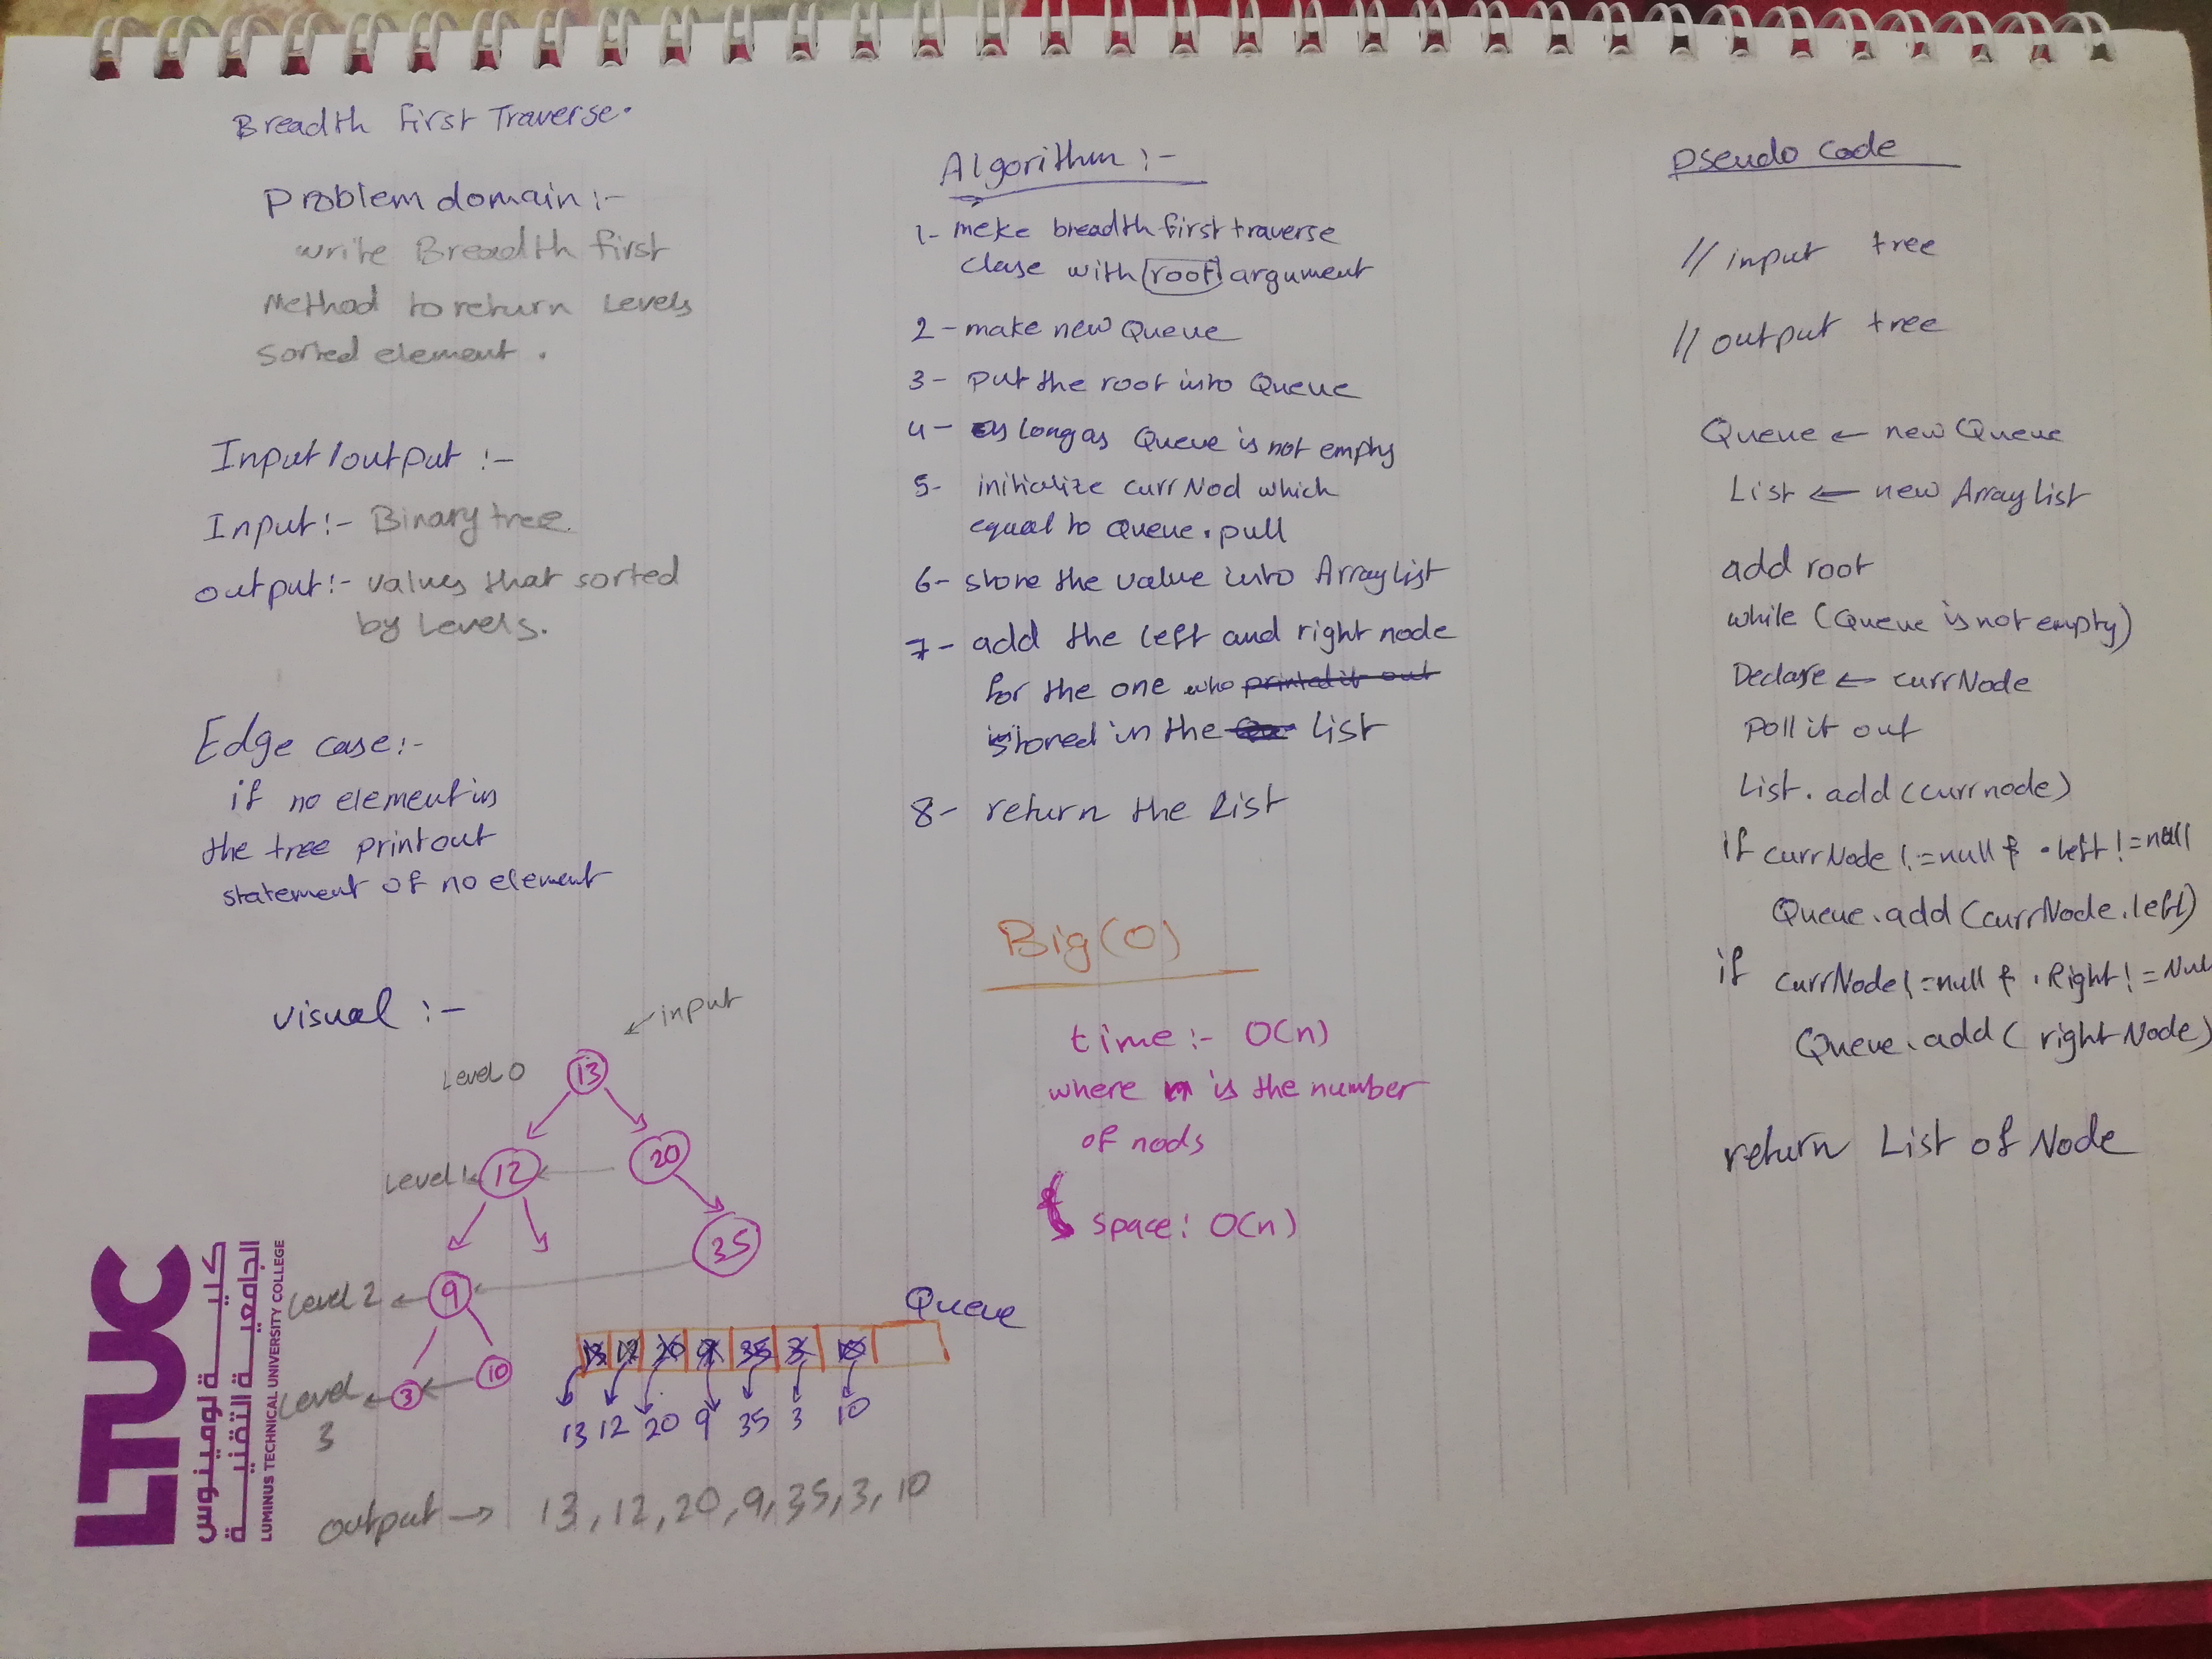 Breadth first Traverse.
Problem domain :-
write Breadth first
Method to return Levels
sorted element .
Input/output :-
Input :- Binary tree.
output :- values that sorted
by Levels.
Edge case :-
if no element in
the tree print out
statement of no element
visual :-
← input
Level 0
13
Level 1
12
20
35
Level 2
9
Level
3
3
10
Queue
13 12 20 9 35 3 10
13 12 20 9 35 3 10
output → 13, 12, 20, 9, 35, 3, 10
LTUC
كليـــــة لومينوس
الجامعيـــة التقنيـــة
LUMINUS TECHNICAL UNIVERSITY COLLEGE
Algorithm :-
1- meke breadth first traverse
clase with root argument
2- make new Queue
3- put the root into Queue
4- as long as Queue is not empty
5- initialize curr Nod which
equal to Queue . pull
6- store the value into Array List
7- add the left and right node
for the one who printed it out
stored in the List
8- return the List
Big (O)
time :- O(n)
where n is the number
of nods
space : O(n)
pseudo code
// input tree
// output tree
Queue ← new Queue
List ← new Array list
add root
while (Queue is not empty)
Declare ← currNode
Poll it out
List . add (currnode)
if currNode != null & .left != null
Queue.add (currNode.left)
if currNode != null & .Right != Nul
Queue.add ( right Node)
return List of Node